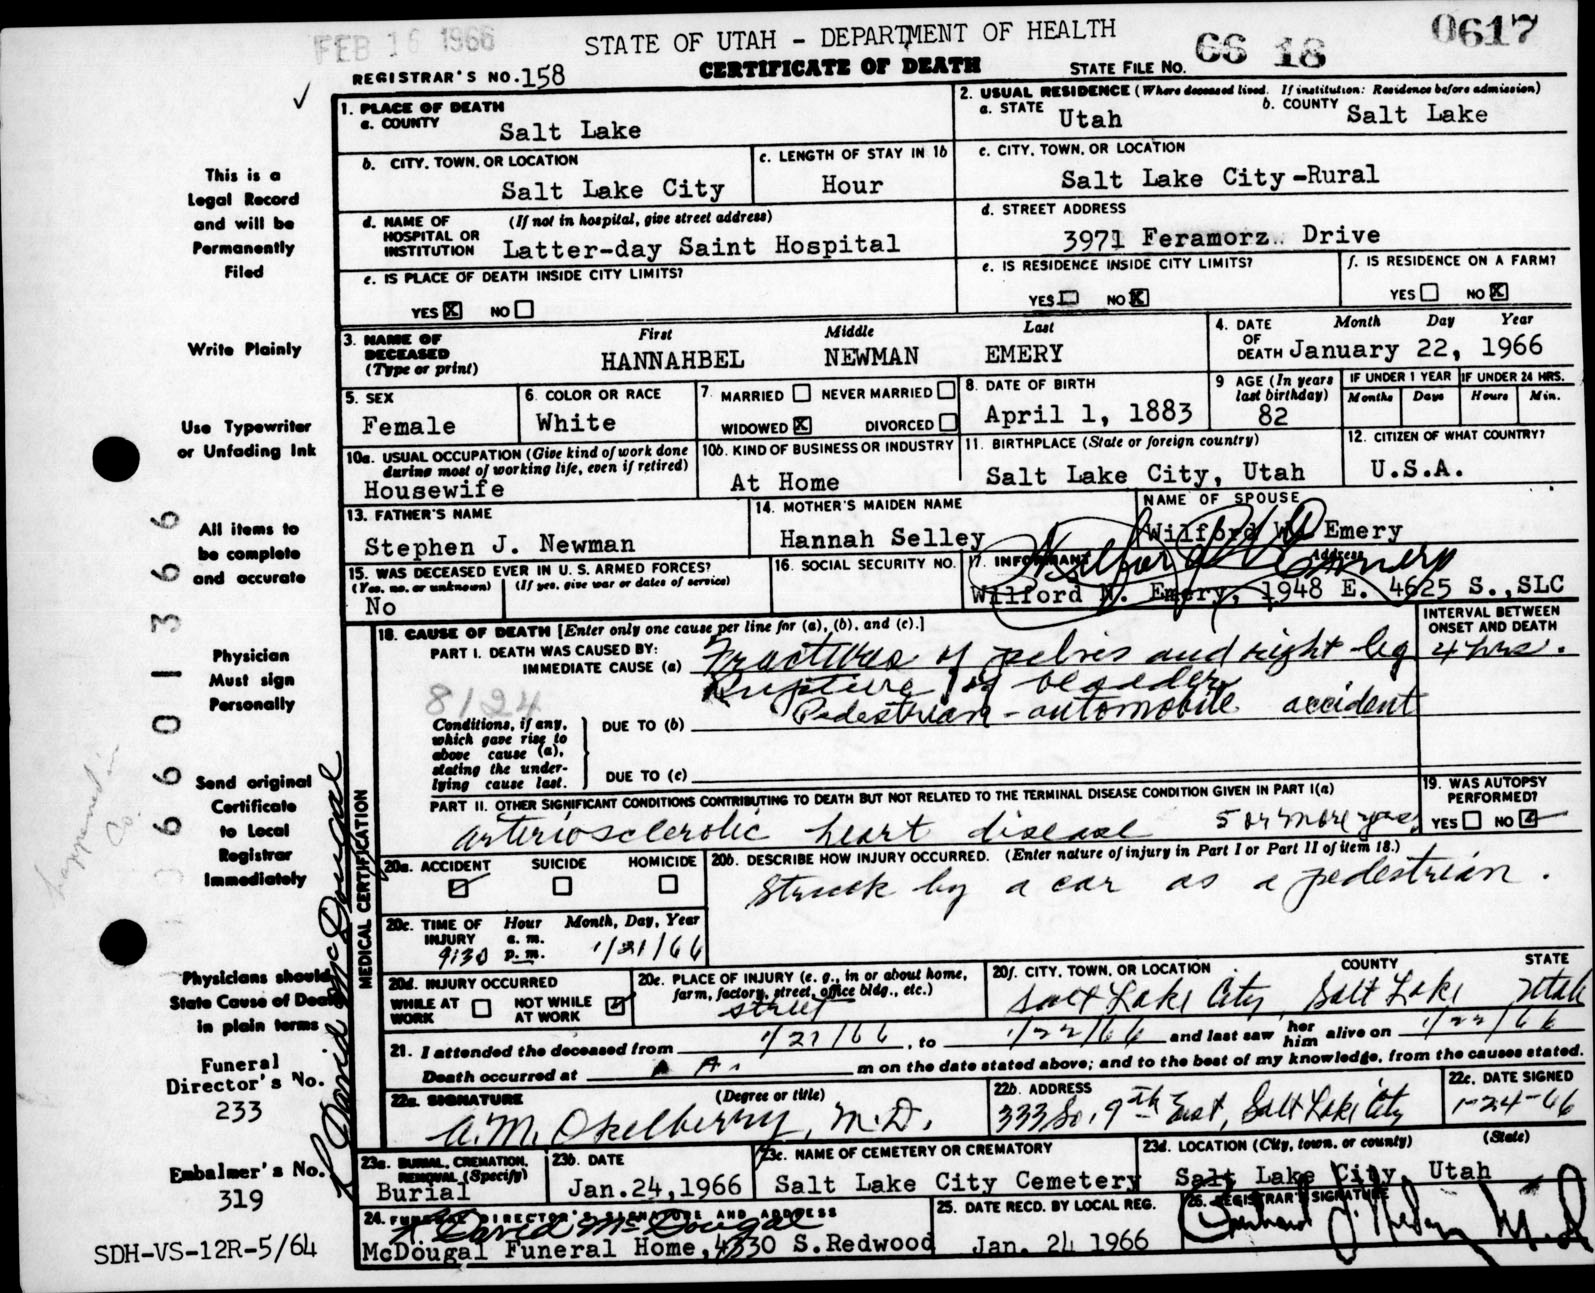 FEB 16 1966
STATE OF UTAH - DEPARTMENT OF HEALTH
66 18
0617
REGISTRAR'S NO. 158
CERTIFICATE OF DEATH
STATE FILE NO.
This is a
Legal Record
and will be
Permanently
Filed
Write Plainly
Use Typewriter
or Unfading Ink
All items to
be complete
and accurate
Physician
Must sign
Personally
Send original
Certificate
to Local
Registrar
Immediately
Physicians should
State Cause of Death
in plain terms
Funeral
Director's No.
233
Embalmer's No.
319
SDH-VS-12R-5/64
happened in
Co.
L David McDougal
MEDICAL CERTIFICATION
1. PLACE OF DEATH
a. COUNTY
Salt Lake
2. USUAL RESIDENCE (Where deceased lived. If institution: Residence before admission)
a. STATE Utah
b. COUNTY Salt Lake
b. CITY, TOWN, OR LOCATION
Salt Lake City
c. LENGTH OF STAY IN 1b
Hour
c. CITY, TOWN, OR LOCATION
Salt Lake City-Rural
d. NAME OF HOSPITAL OR INSTITUTION (If not in hospital, give street address)
Latter-day Saint Hospital
d. STREET ADDRESS
3971 Feramorz Drive
e. IS PLACE OF DEATH INSIDE CITY LIMITS?
YES X NO
e. IS RESIDENCE INSIDE CITY LIMITS?
YES NO X
f. IS RESIDENCE ON A FARM?
YES NO X
3. NAME OF DECEASED (Type or print)
First Middle Last
HANNAHBEL NEWMAN EMERY
4. DATE OF DEATH Month Day Year
January 22, 1966
5. SEX
Female
6. COLOR OR RACE
White
7. MARRIED NEVER MARRIED
WIDOWED X DIVORCED
8. DATE OF BIRTH
April 1, 1883
9 AGE (In years last birthday)
82
IF UNDER 1 YEAR IF UNDER 24 HRS.
Months Days Hours Min.
10a. USUAL OCCUPATION (Give kind of work done during most of working life, even if retired)
Housewife
10b. KIND OF BUSINESS OR INDUSTRY
At Home
11. BIRTHPLACE (State or foreign country)
Salt Lake City, Utah
12. CITIZEN OF WHAT COUNTRY?
U.S.A.
13. FATHER'S NAME
Stephen J. Newman
14. MOTHER'S MAIDEN NAME
Hannah Selley
NAME OF SPOUSE
Wilford W. Emery
15. WAS DECEASED EVER IN U. S. ARMED FORCES?
(Yes, no, or unknown) (If yes, give war or dates of service)
No
16. SOCIAL SECURITY NO.
17. INFORMANT Address
Wilford N. Emery, 1948 E. 4625 S., SLC
18. CAUSE OF DEATH [Enter only one cause per line for (a), (b), and (c).]
INTERVAL BETWEEN ONSET AND DEATH
PART I. DEATH WAS CAUSED BY:
IMMEDIATE CAUSE (a) Fractures of pelvis and right leg 4 hrs.
Rupture of bladder
8124
Pedestrian-automobile accident
Conditions, if any, which gave rise to above cause (a), stating the underlying cause last.
DUE TO (b)
DUE TO (c)
PART II. OTHER SIGNIFICANT CONDITIONS CONTRIBUTING TO DEATH BUT NOT RELATED TO THE TERMINAL DISEASE CONDITION GIVEN IN PART I(a)
arteriosclerotic heart disease 5 or more years
19. WAS AUTOPSY PERFORMED?
YES NO
20a. ACCIDENT SUICIDE HOMICIDE
20b. DESCRIBE HOW INJURY OCCURRED. (Enter nature of injury in Part I or Part II of item 18.)
Struck by a car as a pedestrian.
20c. TIME OF INJURY Hour Month, Day, Year
a. m.
9:30 p. m. 1/21/66
20d. INJURY OCCURRED
WHILE AT WORK NOT WHILE AT WORK
20e. PLACE OF INJURY (e. g., in or about home, farm, factory, street, office bldg., etc.)
street
20f. CITY, TOWN, OR LOCATION COUNTY STATE
Salt Lake City, Salt Lake Utah
21. I attended the deceased from 1/21/66, to 1/22/66 and last saw her him alive on 1/22/66
Death occurred at A. m on the date stated above; and to the best of my knowledge, from the causes stated.
22a. SIGNATURE (Degree or title)
A. M. Okelberry, M.D.
22b. ADDRESS
333 So. 9th East, Salt Lake City
22c. DATE SIGNED
1-24-66
23a. BURIAL, CREMATION, REMOVAL (Specify)
Burial
23b. DATE
Jan.24,1966
23c. NAME OF CEMETERY OR CREMATORY
Salt Lake City Cemetery
23d. LOCATION (City, town, or county) (State)
Salt Lake City, Utah
24. FUNERAL DIRECTOR'S SIGNATURE AND ADDRESS
L. David McDougal
McDougal Funeral Home, 4330 S.Redwood
25. DATE RECD. BY LOCAL REG.
Jan. 24 1966
26. REGISTRAR'S SIGNATURE